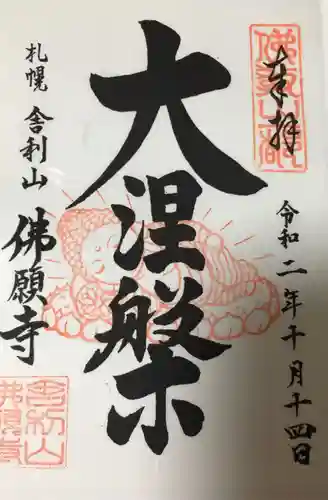 奉拝
令和二年十月十四日
大涅槃
札幌 舎利山
佛願寺
舎利山
佛願寺